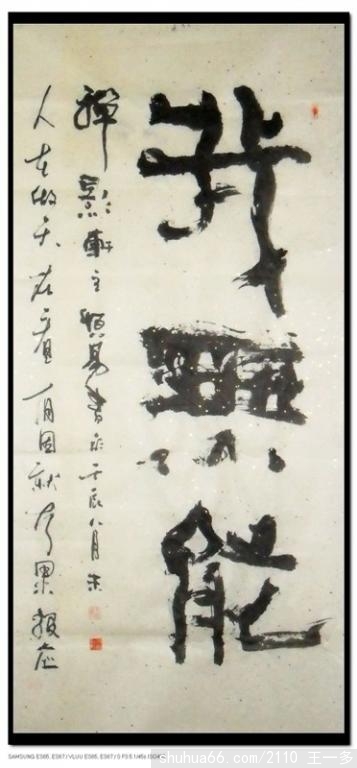 我無能
禪影軒主 易書於壬辰八月末
人在做天在看有因就有果报应
SAMSUNG ES65, ES67 / VLUU ES65, ES67 / S F3.5 1/45s
shuhua66.com/2110 王一多